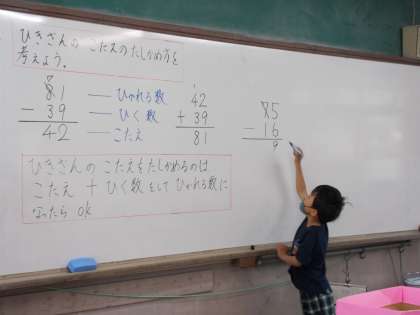 ひきざんの こたえのたしかめ方を
考えよう。
81 ― ひかれる数
− 39 ― ひく数
42 ― こたえ
42
+ 39
81
75
− 16
9
ひきざんの こたえをたしかめるのは
こたえ + ひく数 をして ひかれる数に
なったら OK